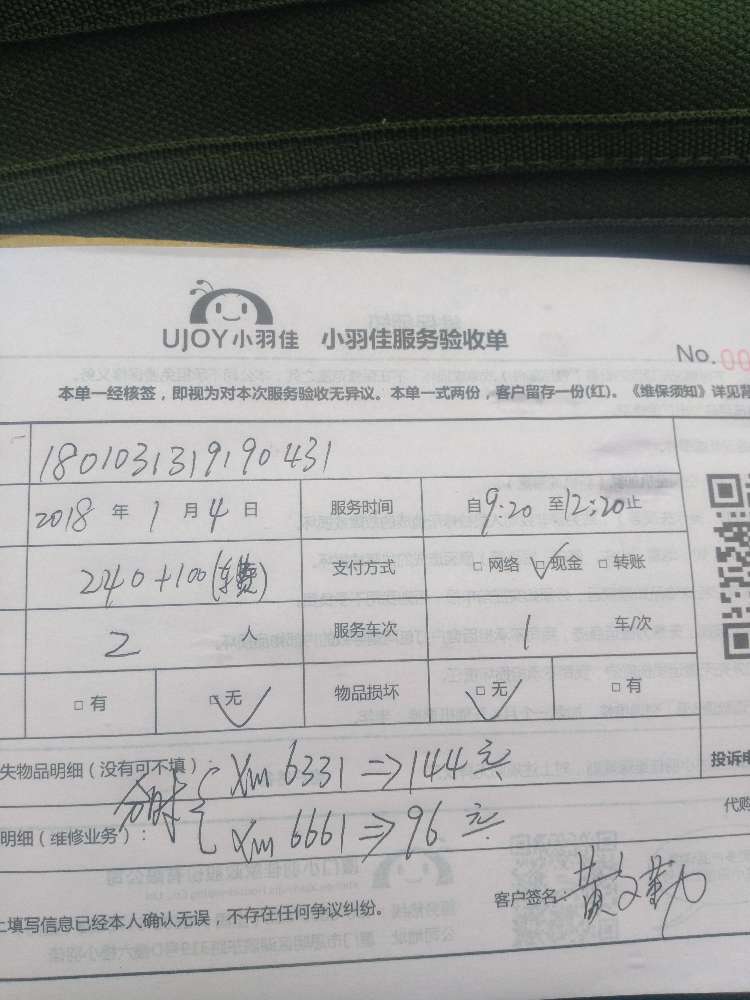 UJOY小羽佳 小羽佳服务验收单
No. 00
本单一经核签，即视为对本次服务验收无异议。本单一式两份，客户留存一份(红)。《维保须知》详见背
1801031319190431
2018 年 1 月 4 日 服务时间 自9:20 至12:20止
240+100(车费) 支付方式 □ 网络 □ 现金 □ 转账
2 人 服务车次 1 车/次
□ 有 □ 无 物品损坏 □ 无 □ 有
失物品明细（没有可不填）: xm 6331 => 144元 投诉电
分时
明细（维修业务）: xm 6661 => 96元 代购
客户签名 黄文勤
上填写信息已经本人确认无误，不存在任何争议纠纷。